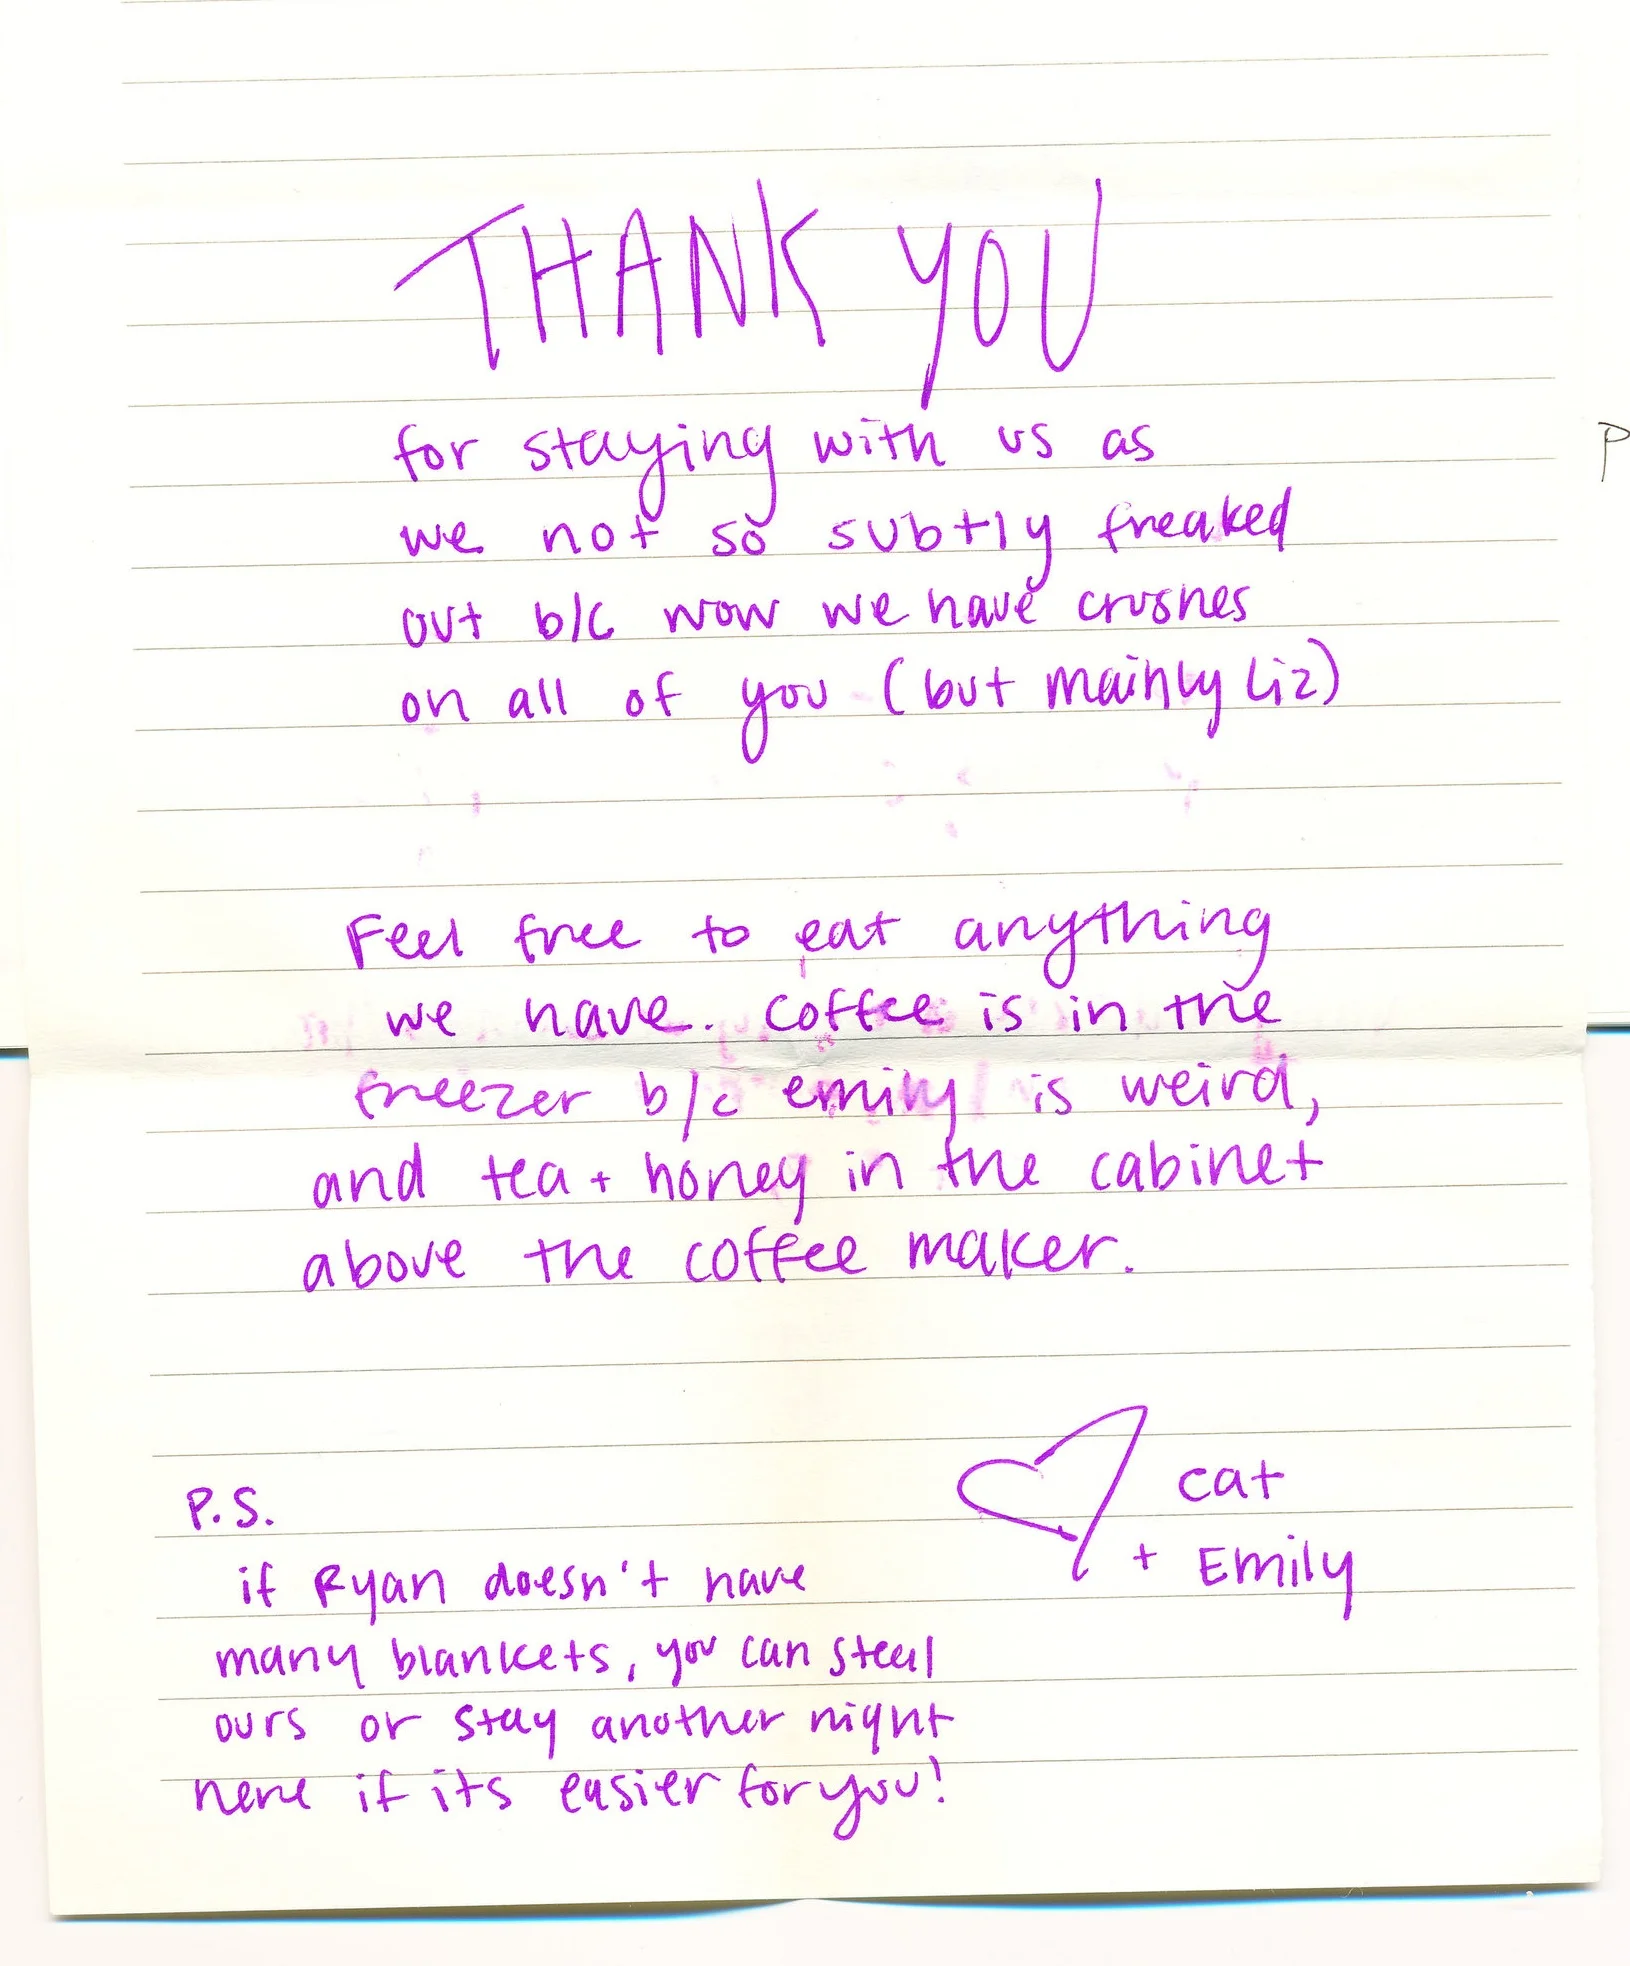 THANK YOU
for staying with us as
we not so subtly freaked
out b/c wow we have crushes
on all of you (but mainly Liz)
Feel free to eat anything
we have. Coffee is in the
freezer b/c emily is weird,
and tea + honey in the cabinet
above the coffee maker.
cat
+ Emily
P.S.
if Ryan doesn't have
many blankets, you can steal
ours or stay another night
here if its easier for you!
P